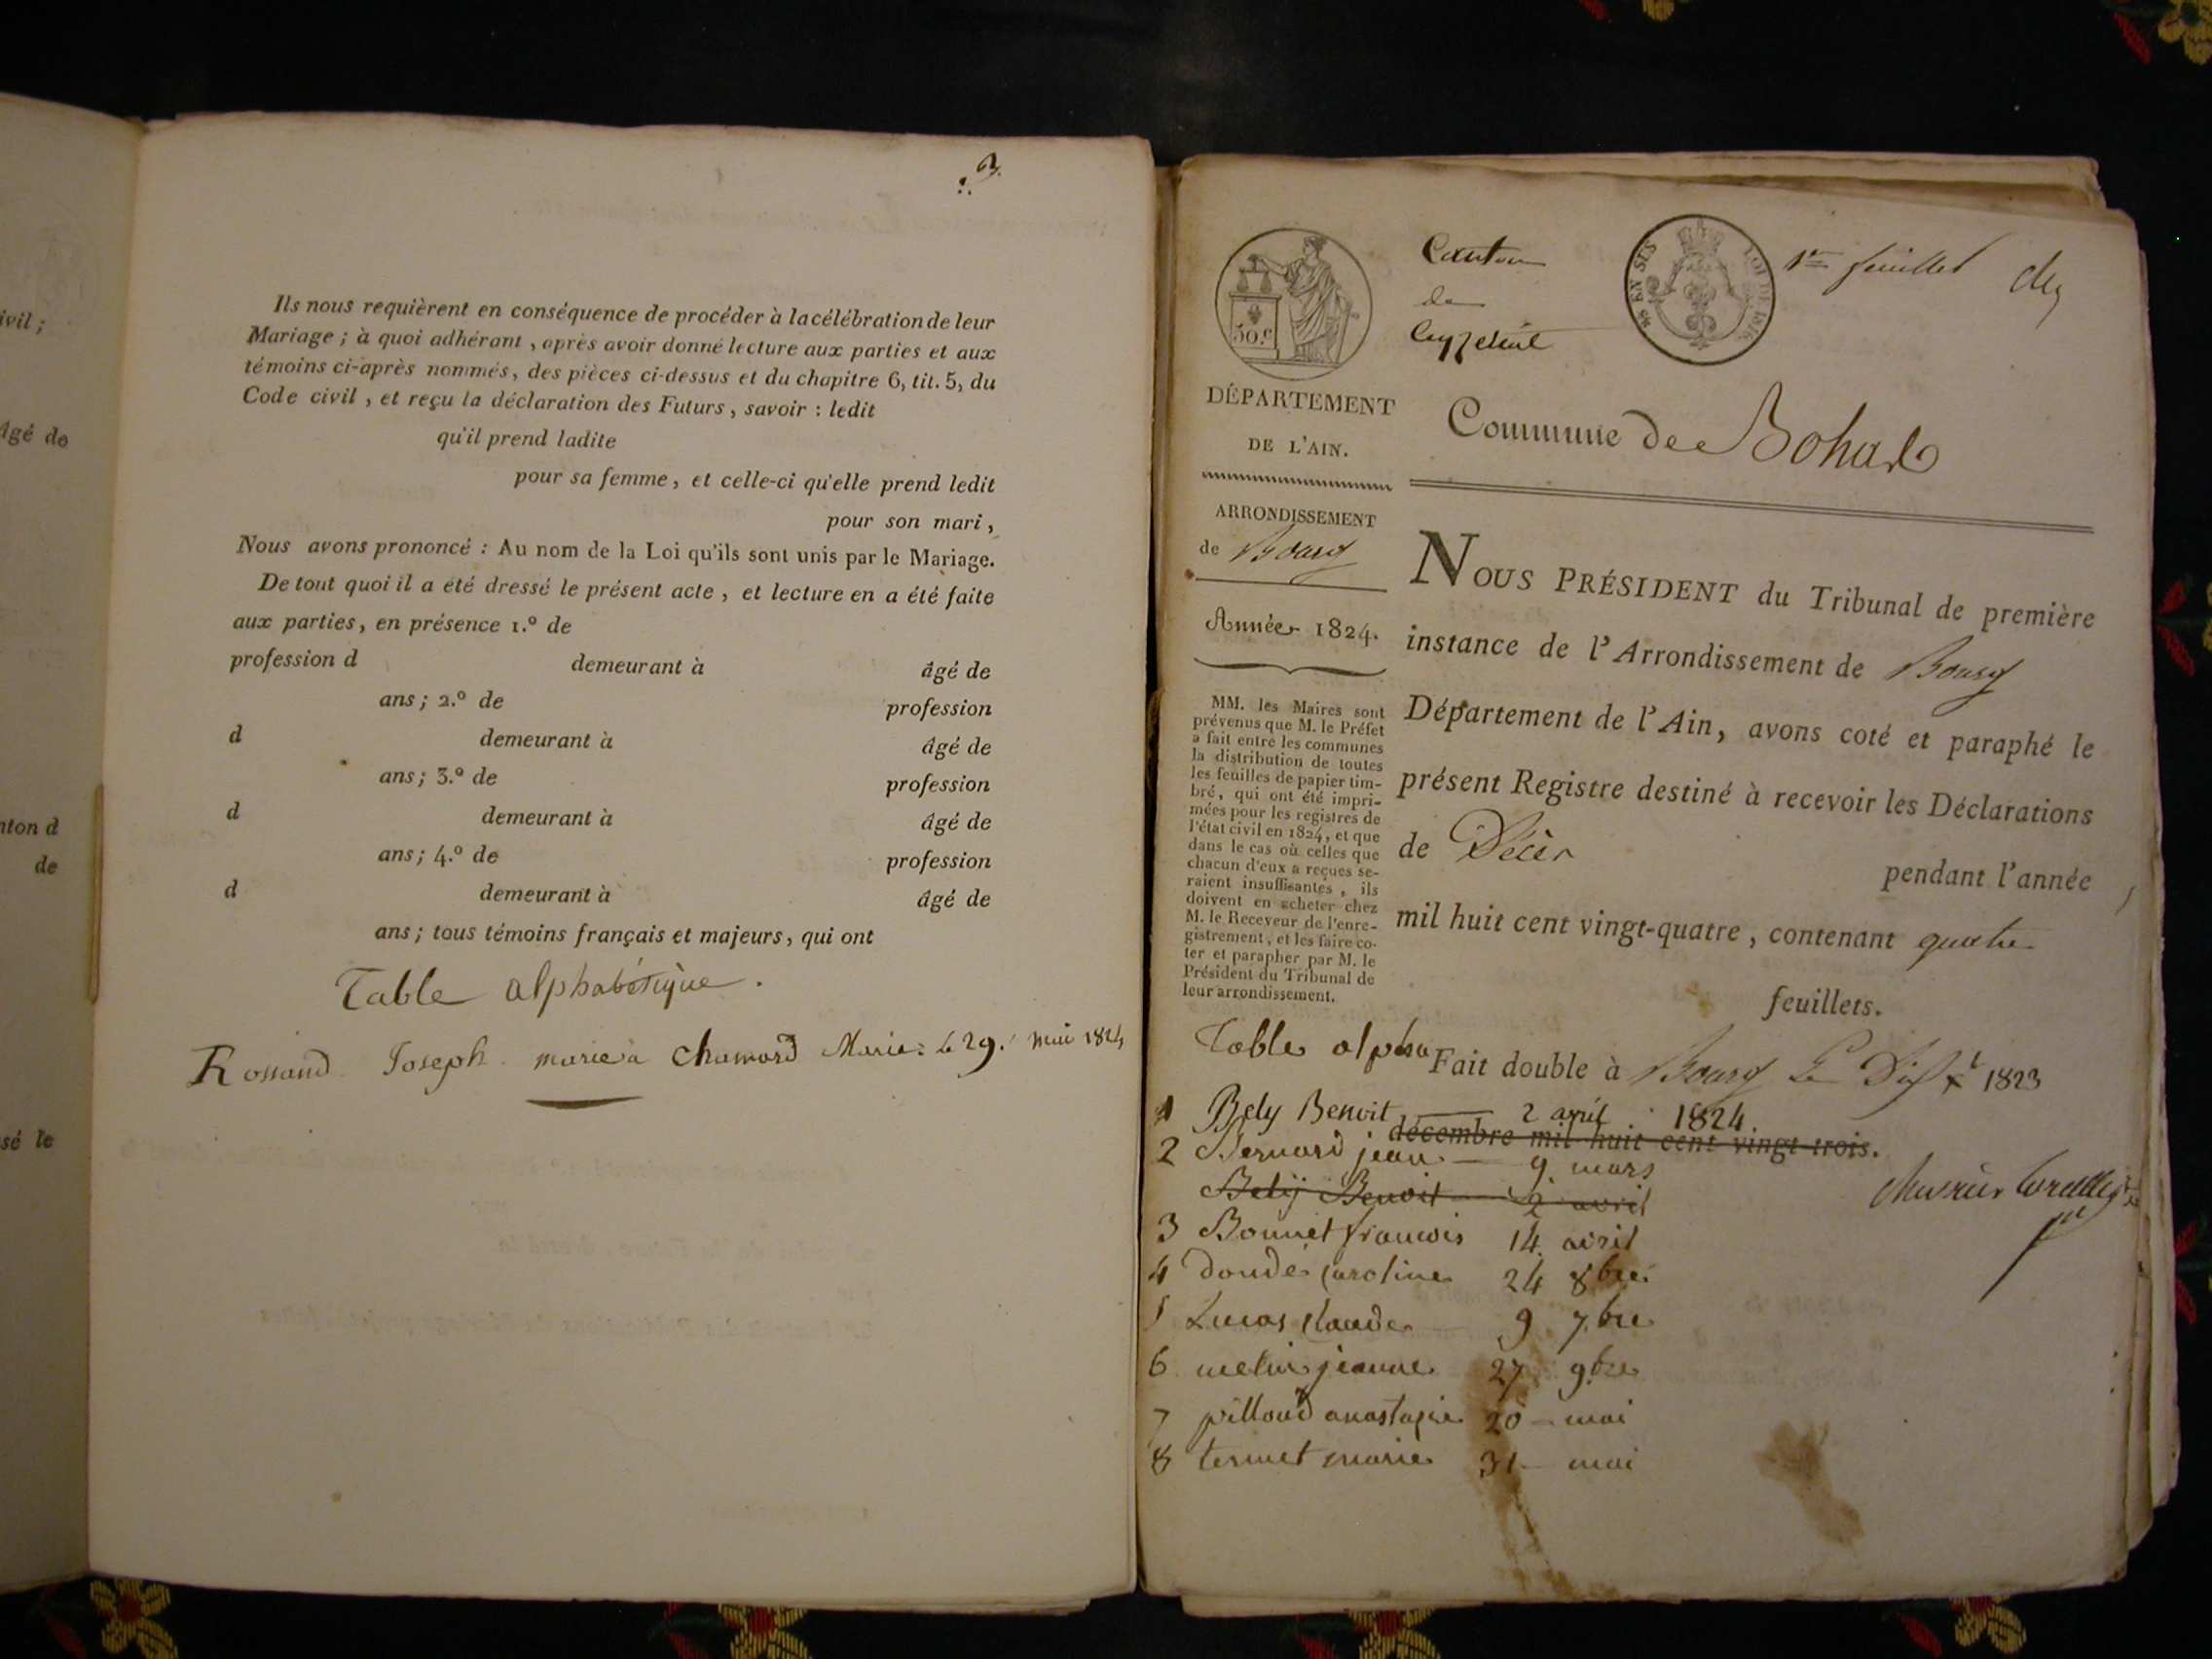 ivil ;
Agé de
nton d
de
sé le
3.
Ils nous requièrent en conséquence de procéder à la célébration de leur
Mariage ; à quoi adhérant , après avoir donné lecture aux parties et aux
témoins ci-après nommés, des pièces ci-dessus et du chapitre 6, tit. 5, du
Code civil , et reçu la déclaration des Futurs , savoir : ledit
qu'il prend ladite
pour sa femme, et celle-ci qu'elle prend ledit
pour son mari ,
Nous avons prononcé : Au nom de la Loi qu'ils sont unis par le Mariage.
De tout quoi il a été dressé le présent acte , et lecture en a été faite
aux parties, en présence 1.º de
profession d demeurant à âgé de
ans ; 2.º de profession
d demeurant à âgé de
ans ; 3.º de profession
d demeurant à âgé de
ans ; 4.º de profession
d demeurant à âgé de
ans ; tous témoins français et majeurs, qui ont
Table alphabétique.
Rossand Joseph marié à Chamard Marie le 29. mai 1824
50.c
EN SES
LOI DE 1816
Canton
de
Ceyzeriat
1er feuillet
DÉPARTEMENT
DE L'AIN.
Commune de Bohas
ARRONDISSEMENT
de Bourg
Année 1824.
MM. les Maires sont
prévenus que M. le Préfet
a fait entre les communes
la distribution de toutes
les feuilles de papier tim-
bré, qui ont été impri-
mées pour les registres de
l'état civil en 1824, et que
dans le cas où celles que
chacun d'eux a reçues se-
raient insuffisantes , ils
doivent en acheter chez
M. le Receveur de l'enre-
gistrement, et les faire co-
ter et parapher par M. le
Président du Tribunal de
leur arrondissement.
NOUS PRÉSIDENT du Tribunal de première
instance de l'Arrondissement de Bourg
Département de l'Ain, avons coté et paraphé le
présent Registre destiné à recevoir les Déclarations
de Décès
pendant l'année
mil huit cent vingt-quatre , contenant quatre
feuillets.
Table alpha
Fait double à Bourg Le Dix Xbre 1823
décembre mil huit cent vingt-trois.
1 Bely Benoit 2 avril 1824.
2 Bernard jean 9 mars
Belij Benoit 2 avril
3 Bonnet francois 14 avril
4 Doudé caroline 24 8bre
5 Lucas claude 9 7bre
6 melin jeanne 27 9bre
7 pilloud anastasie 20 mai
8 termet marie 31 mai